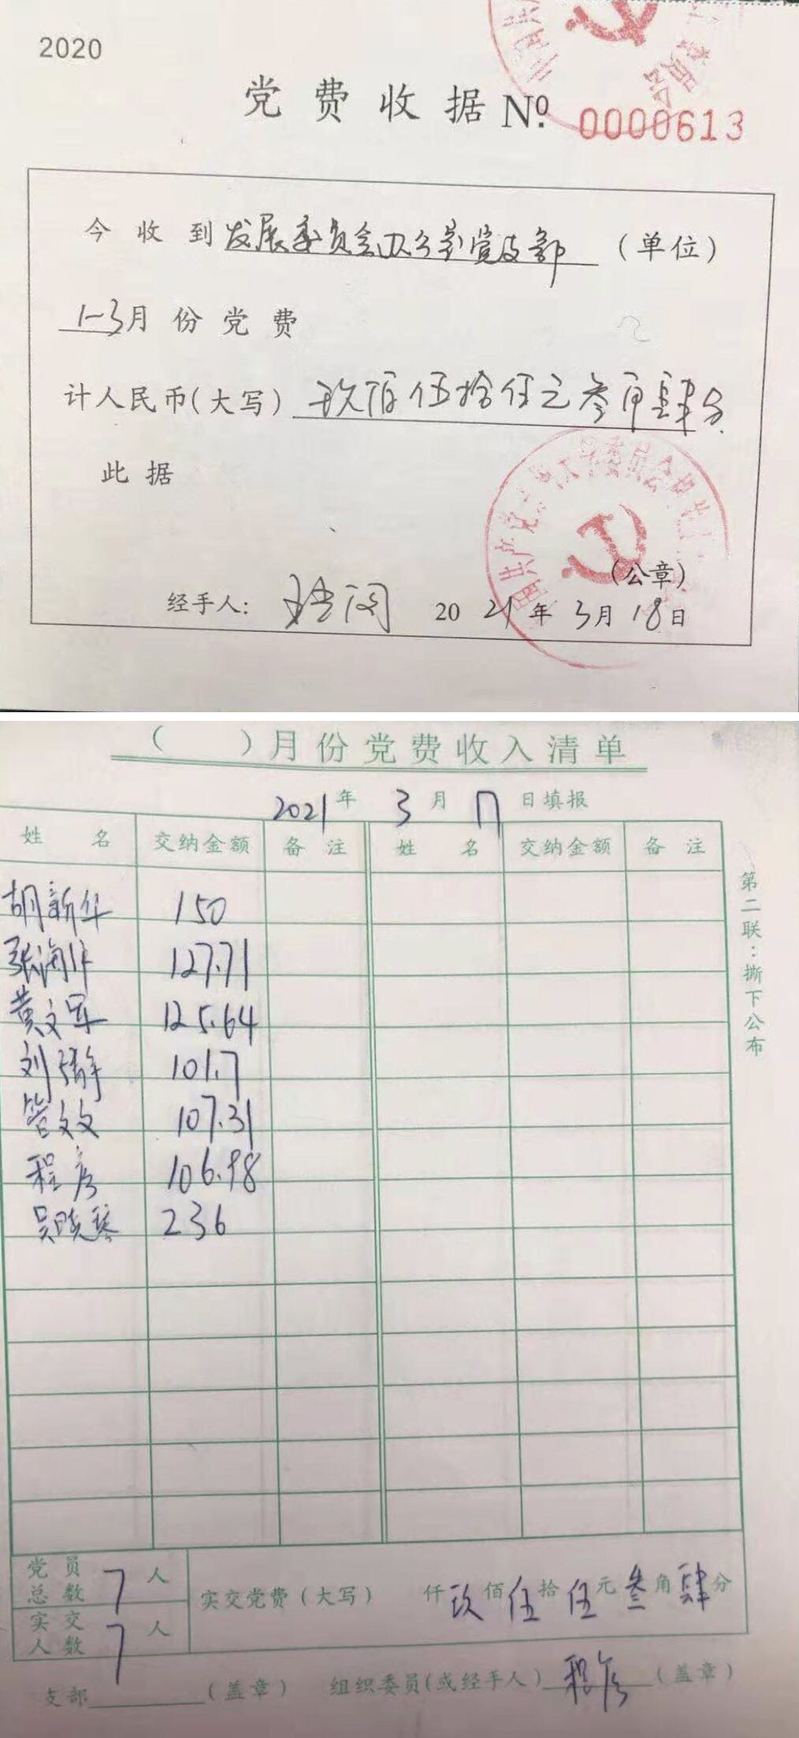 2020
党费收据 No. 0000613
今收到发展委员会办公室党支部（单位）
1-3月份党费
计人民币(大写)玖佰伍拾伍元叁角肆分
此据
(公章)
经手人: 2021年3月18日
( )月份党费收入清单
2021年3月17日填报
姓名 交纳金额 备注 姓名 交纳金额 备注
胡新华 150
张海 127.71
黄文军 125.64
刘静 101.7
管文文 107.31
程序 106.98
吴晓琴 236
第二联：撕下公布
党员总数 7人
实交党费（大写） 仟玖佰伍拾伍元叁角肆分
实交人数 7人
支部 （盖章） 组织委员(或经手人) 程序 （盖章）